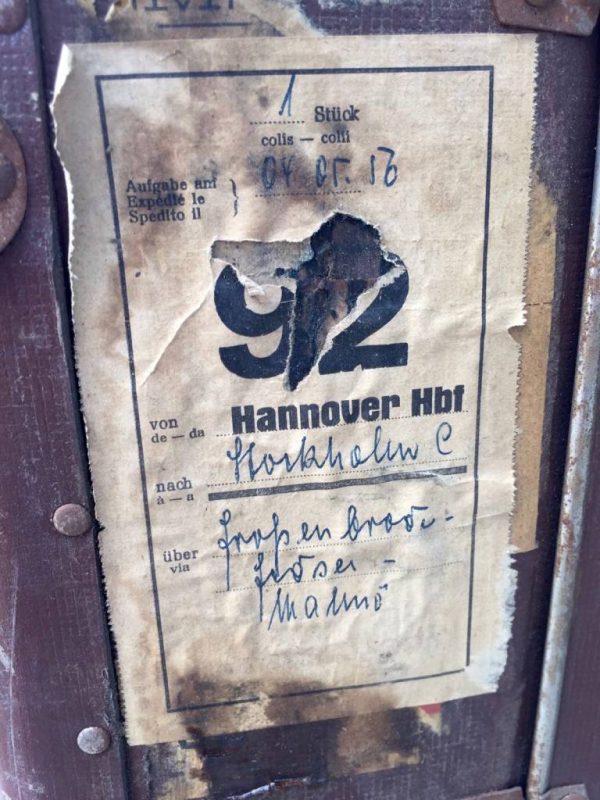 1 Stück
colis — colli
Aufgabe am
Expédié le
Spedito il
04 05.
92
von Hannover Hbf
de — da
nach Stockholm C
à — a
über Großenbrode -
via Gedser -
Malmö